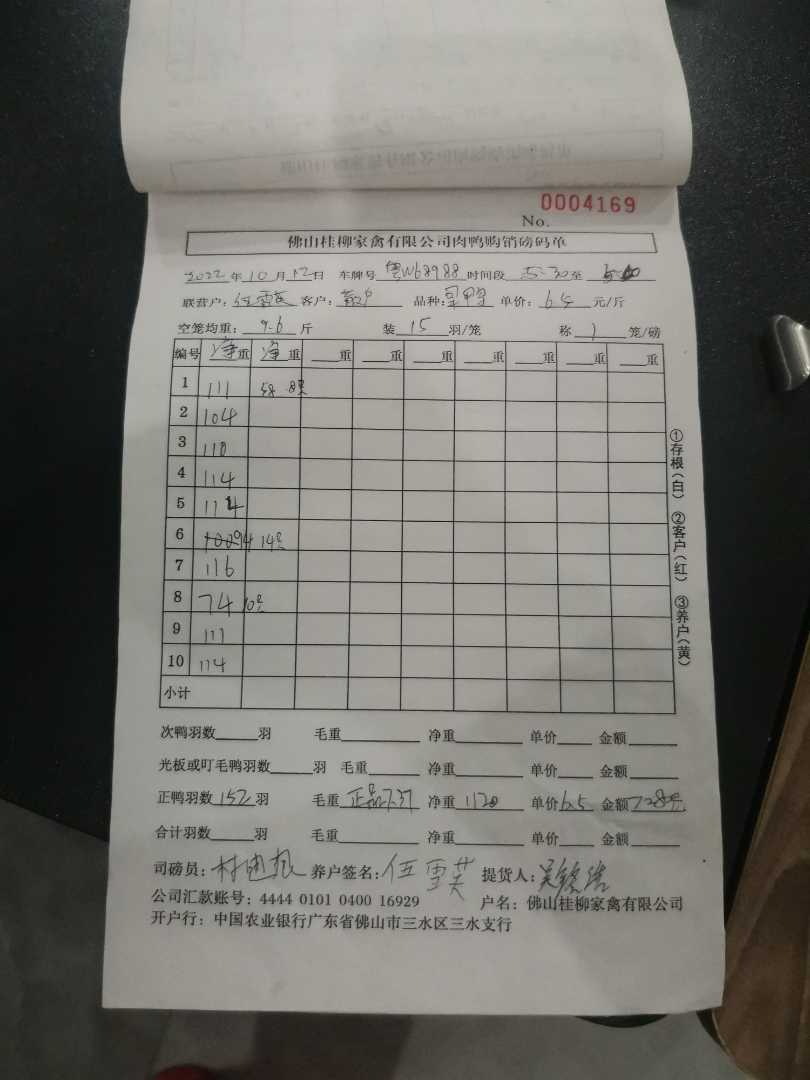 0004169
No.
佛山桂柳家禽有限公司肉鸭购销磅码单
2022年10月12日 车牌号粤W68988时间段5:30至
联营户: 客户:散户 品种: 单价:6.5元/斤
空笼均重:9.6斤 装15羽/笼 称1笼/磅
编号 净重 净重 重 重 重 重 重 重 重
1 111 58 8只
2 104
3 110
4 114
5 114
6 94 14只
7 116
8 74 10只
9 111
10 114
小计
①存根(白) ②客户(红) ③养户(黄)
次鸭羽数 羽 毛重 净重 单价 金额
光板或叮毛鸭羽数 羽 毛重 净重 单价 金额
正鸭羽数152羽 毛重正品7.37 净重1120 单价6.5 金额7280元
合计羽数 羽 毛重 净重 单价 金额
司磅员: 养户签名:伍雪英 提货人:
公司汇款账号:4444 0101 0400 16929 户名:佛山桂柳家禽有限公司
开户行:中国农业银行广东省佛山市三水区三水支行